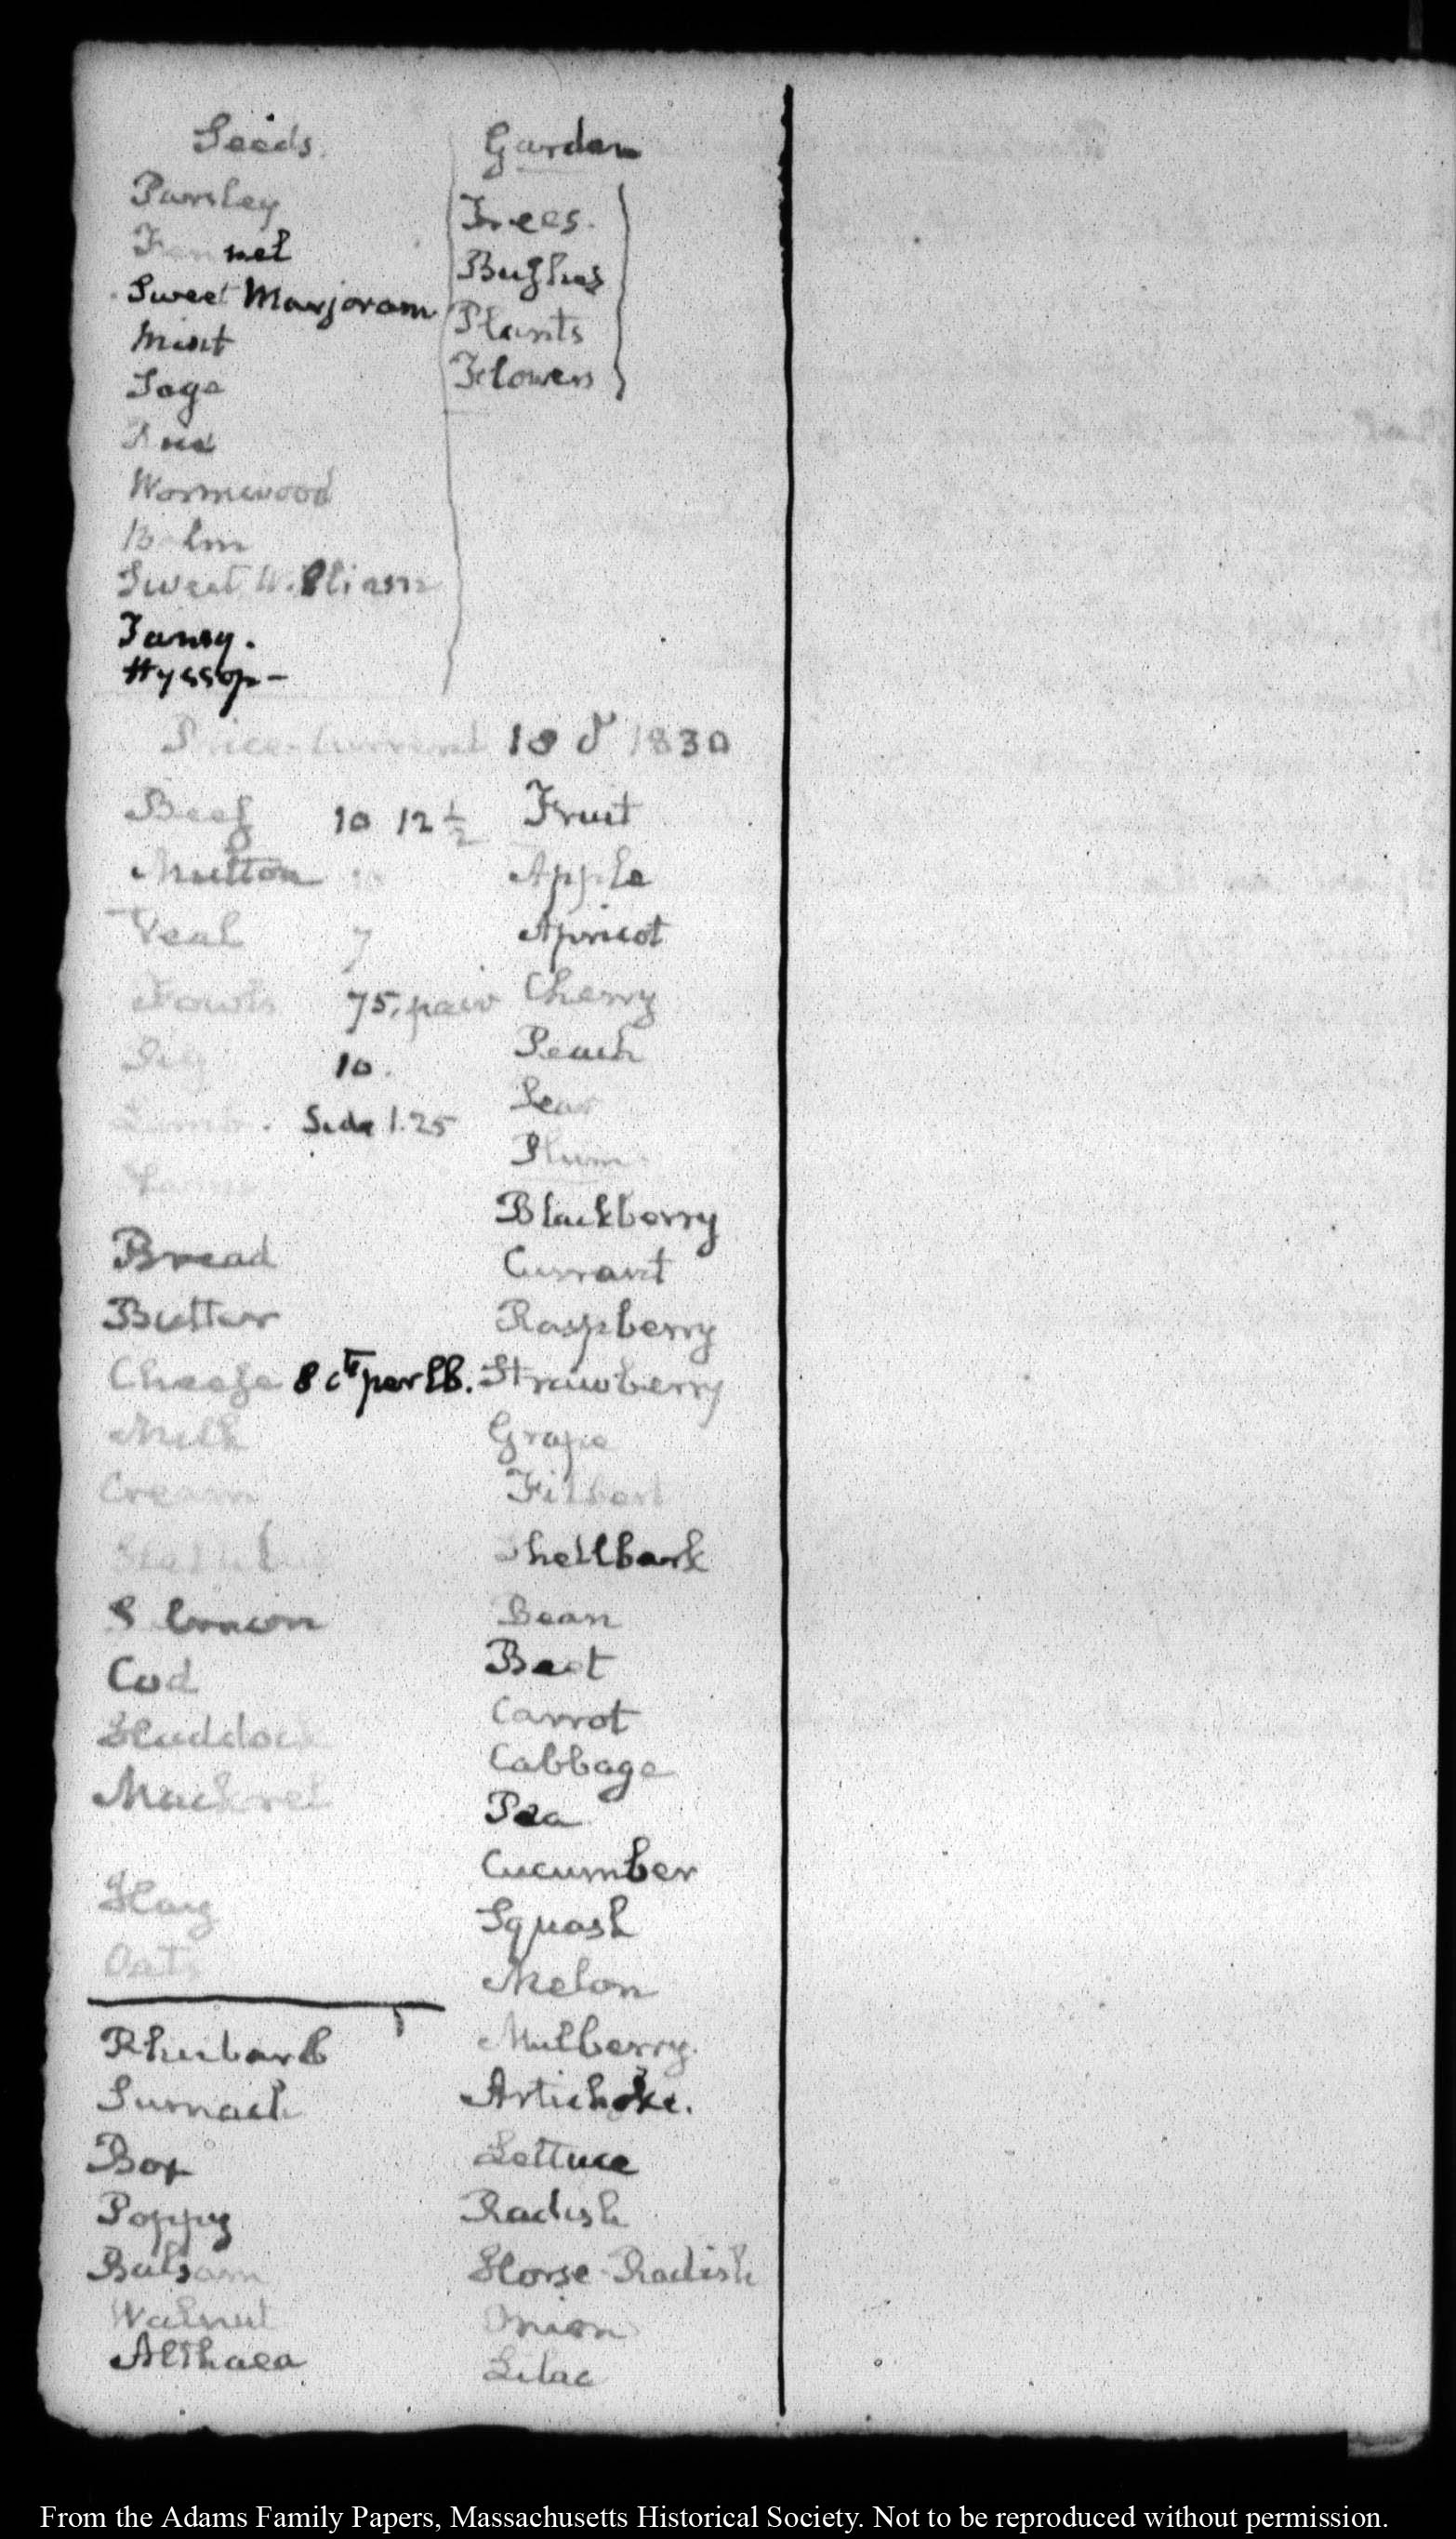 Seeds.
Parsley
Fennel
Sweet Marjoram
Mint
Sage
Rue
Wormwood
Balm
Sweet William
Tansy.
Hyssop-
Garden
Trees.
Bushes
Plants
Flowers
Price-Current 18 1830
Beef 10 12 1/2
Mutton 10
Veal 7
Fowls 75. pair
Pig 10.
Lamb. Side 1.25
Bread
Butter
Cheese 8 cts per lb.
Milk
Cream
Halibut
Salmon
Cod
Haddock
Mackrel
Hay
Oats
Rhubarb
Sumach
Box
Poppy
Balsam
Walnut
Althaea
Fruit
Apple
Apricot
Cherry
Peach
Pear
Plum
Blackberry
Currant
Raspberry
Strawberry
Grape
Filbert
Shellbark
Bean
Beet
Carrot
Cabbage
Pea
Cucumber
Squash
Melon
Mulberry.
Artichoke.
Lettuce
Radish
Horse-Radish
Onion
Lilac
From the Adams Family Papers, Massachusetts Historical Society. Not to be reproduced without permission.